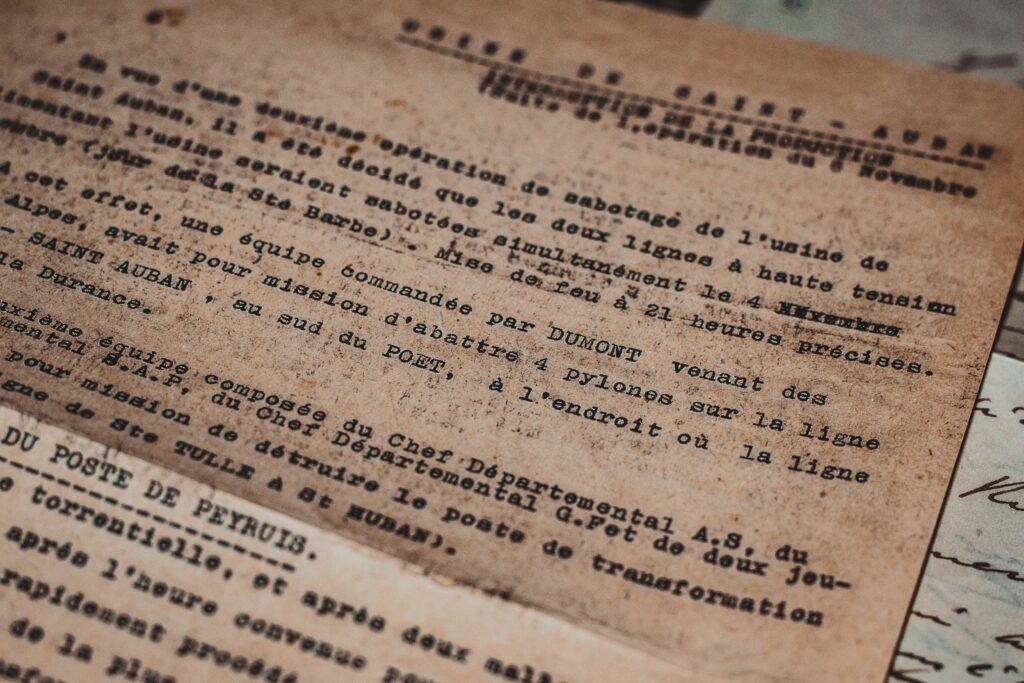 USINE DE SAINT - AUBAN
INTERRUPTION DE LA PRODUCTION
(Suite de l'opération du 8 Novembre
En vue d'une deuxième opération de sabotage de l'usine de
Saint Auban, il a été décidé que les deux lignes à haute tension
imentant l'usine seraient sabotées simultanément le 4
embre (jour de la Ste Barbe). Mise de feu à 21 heures précises.
A cet effet, une équipe commandée par DUMONT venant des
Alpes, avait pour mission d'abattre 4 pylones sur la ligne
- SAINT AUBAN , au sud du POET, à l'endroit où la ligne
la Durance.
uxième équipe composée du Chef Départemental A.S. du
mental S.A.P. du Chef Départemental G.F et de deux jeu-
pour mission de détruire le poste de transformation
gne de Ste TULLE à St AUBAN).
DU POSTE DE PEYRUIS.
e torrentielle, et après deux
aprés l'heure convenue
rapidement procéd
de la plus